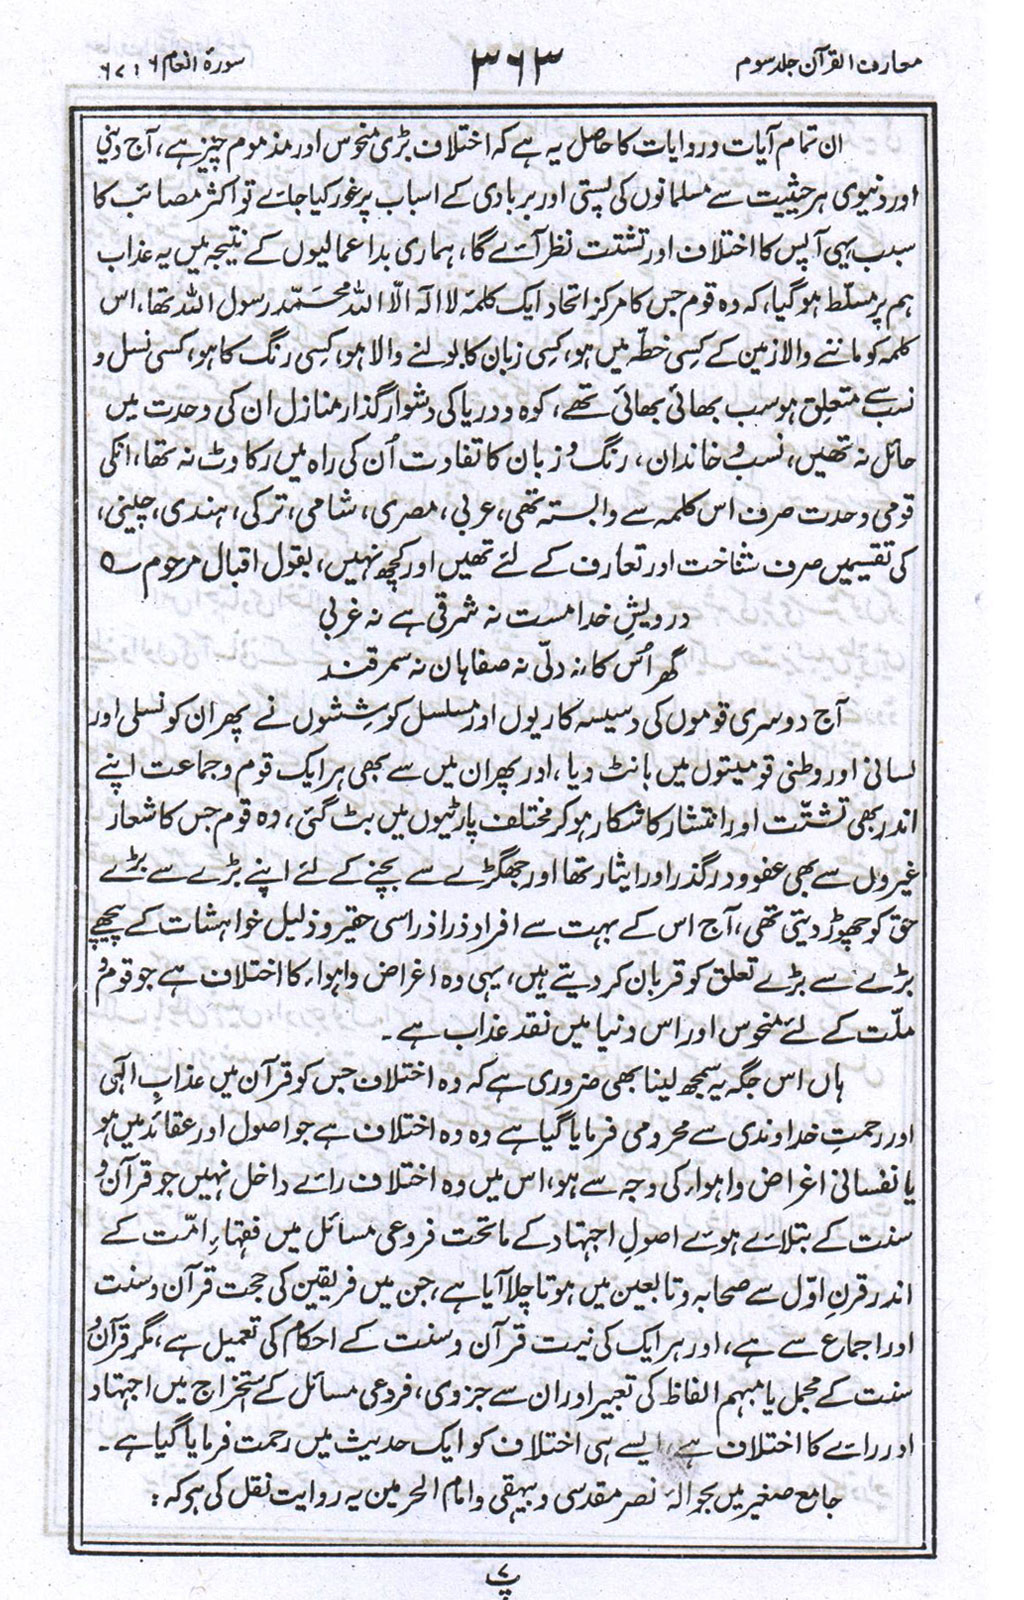 معارف القرآن جلد سوم
۳۶۳
سورۂ انعام ۶ : ۶۷
ان تمام آیات و روایات کا حاصل یہ ہے کہ اختلاف بڑی منحوس اور مذموم چیز ہے، آج دینی
اور دنیوی ہر حیثیت سے مسلمانوں کی پستی اور بربادی کے اسباب پر غور کیا جائے تو اکثر مصائب کا
سبب یہی آپس کا اختلاف اور تشتت نظر آئے گا، ہماری بداعمالیوں کے نتیجہ میں یہ عذاب
ہم پر مسلّط ہوگیا، کہ وہ قوم جس کا مرکز اتحاد ایک کلمہ لا الٰہ الّا اللہ محمّد رسول اللہ تھا، اس
کلمہ کو ماننے والا زمین کے کسی خطّہ میں ہو، کسی زبان کا بولنے والا ہو، کسی رنگ کا ہو، کسی نسل و
نسب سے متعلق ہو سب بھائی بھائی تھے، کوہ و دریا کی دشوار گذار منازل ان کی وحدت میں
حائل نہ تھیں، نسب و خاندان، رنگ و زبان کا تفاوت اُن کی راہ میں رکاوٹ نہ تھا، انکی
قومی وحدت صرف اس کلمہ سے وابستہ تھی، عربی، مصری، شامی، ترکی، ہندی، چینی،
کی تقسیمیں صرف شناخت اور تعارف کے لئے تھیں اور کچھ نہیں، بقول اقبال مرحوم ؎
درویشِ خدا مست نہ شرقی ہے نہ غربی
گھر اُس کا نہ دلّی نہ صفاہان نہ سمرقند
آج دوسری قوموں کی دسیسہ کاریوں اور مسلسل کوششوں نے پھر ان کو نسلی اور
لسانی اور وطنی قومیتوں میں بانٹ دیا، اور پھر ان میں سے بھی ہر ایک قوم و جماعت اپنے
اندر بھی تشتّت اور انتشار کا شکار ہوکر مختلف پارٹیوں میں بٹ گئی، وہ قوم جس کا شعار
غیروں سے بھی عفو و درگذر اور ایثار تھا اور جھگڑے سے بچنے کے لئے اپنے بڑے سے بڑے
حق کو چھوڑ دیتی تھی، آج اس کے بہت سے افراد ذرا ذرا سی حقیر و ذلیل خواہشات کے پیچھے
بڑے سے بڑے تعلق کو قربان کر دیتے ہیں، یہی وہ اغراض و اہواء کا اختلاف ہے جو قوم و
ملّت کے لئے منحوس اور اس دنیا میں نقد عذاب ہے۔
ہاں اس جگہ یہ سمجھ لینا بھی ضروری ہے کہ وہ اختلاف جس کو قرآن میں عذابِ الٰہی
اور رحمتِ خداوندی سے محرومی فرمایا گیا ہے وہ وہ اختلاف ہے جو اصول اور عقائد میں ہو
یا نفسانی اغراض و اہواء کی وجہ سے ہو، اس میں وہ اختلاف رائے داخل نہیں جو قرآن و
سنت کے بتلائے ہوئے اصولِ اجتہاد کے ماتحت فروعی مسائل میں فقہاءِ امّت کے
اندر قرنِ اوّل سے صحابہ و تابعین میں ہوتا چلا آیا ہے، جن میں فریقین کی حجت قرآن و سنت
اور اجماع سے ہے، اور ہر ایک کی نیت قرآن و سنت کے احکام کی تعمیل ہے، مگر قرآن و
سنت کے مجمل یا مبہم الفاظ کی تعبیر اور ان سے جزوی، فروعی مسائل کے ستخراج میں اجتہاد
اور رائے کا اختلاف ہے، ایسے ہی اختلاف کو ایک حدیث میں رحمت فرمایا گیا ہے۔
جامع صغیر میں بحوالۂ نصر مقدسی و بیہقی و امام الحرمین یہ روایت نقل کی ہے کہ:
پ ۷